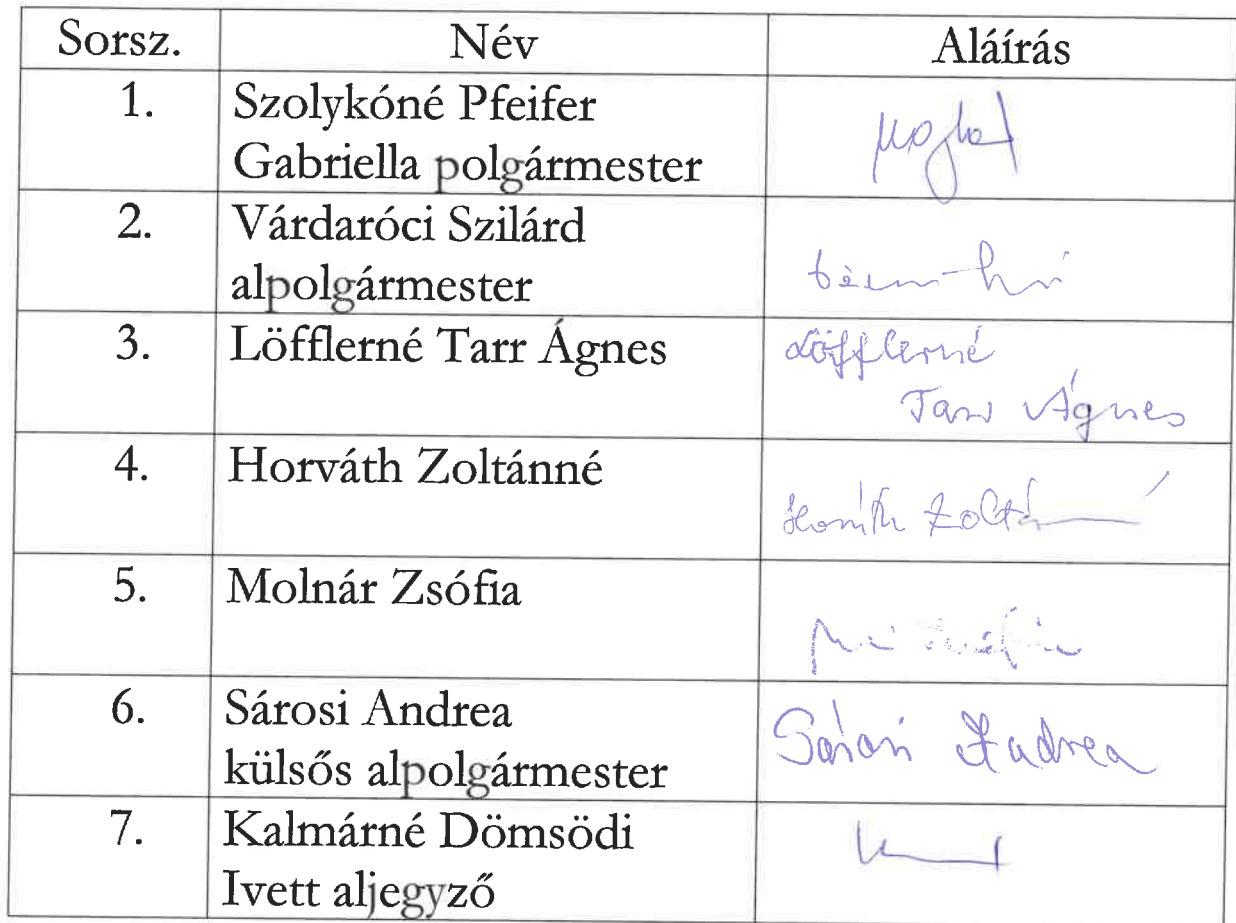 Sorsz. Név Aláírás
1. Szolykóné Pfeifer
Gabriella polgármester
2. Várdaróci Szilárd
alpolgármester
3. Löfflerné Tarr Ágnes Löfflerné
Tarr Ágnes
4. Horváth Zoltánné Horváth Zoltánné
5. Molnár Zsófia
6. Sárosi Andrea Sárosi Andrea
külsős alpolgármester
7. Kalmárné Dömsödi
Ivett aljegyző